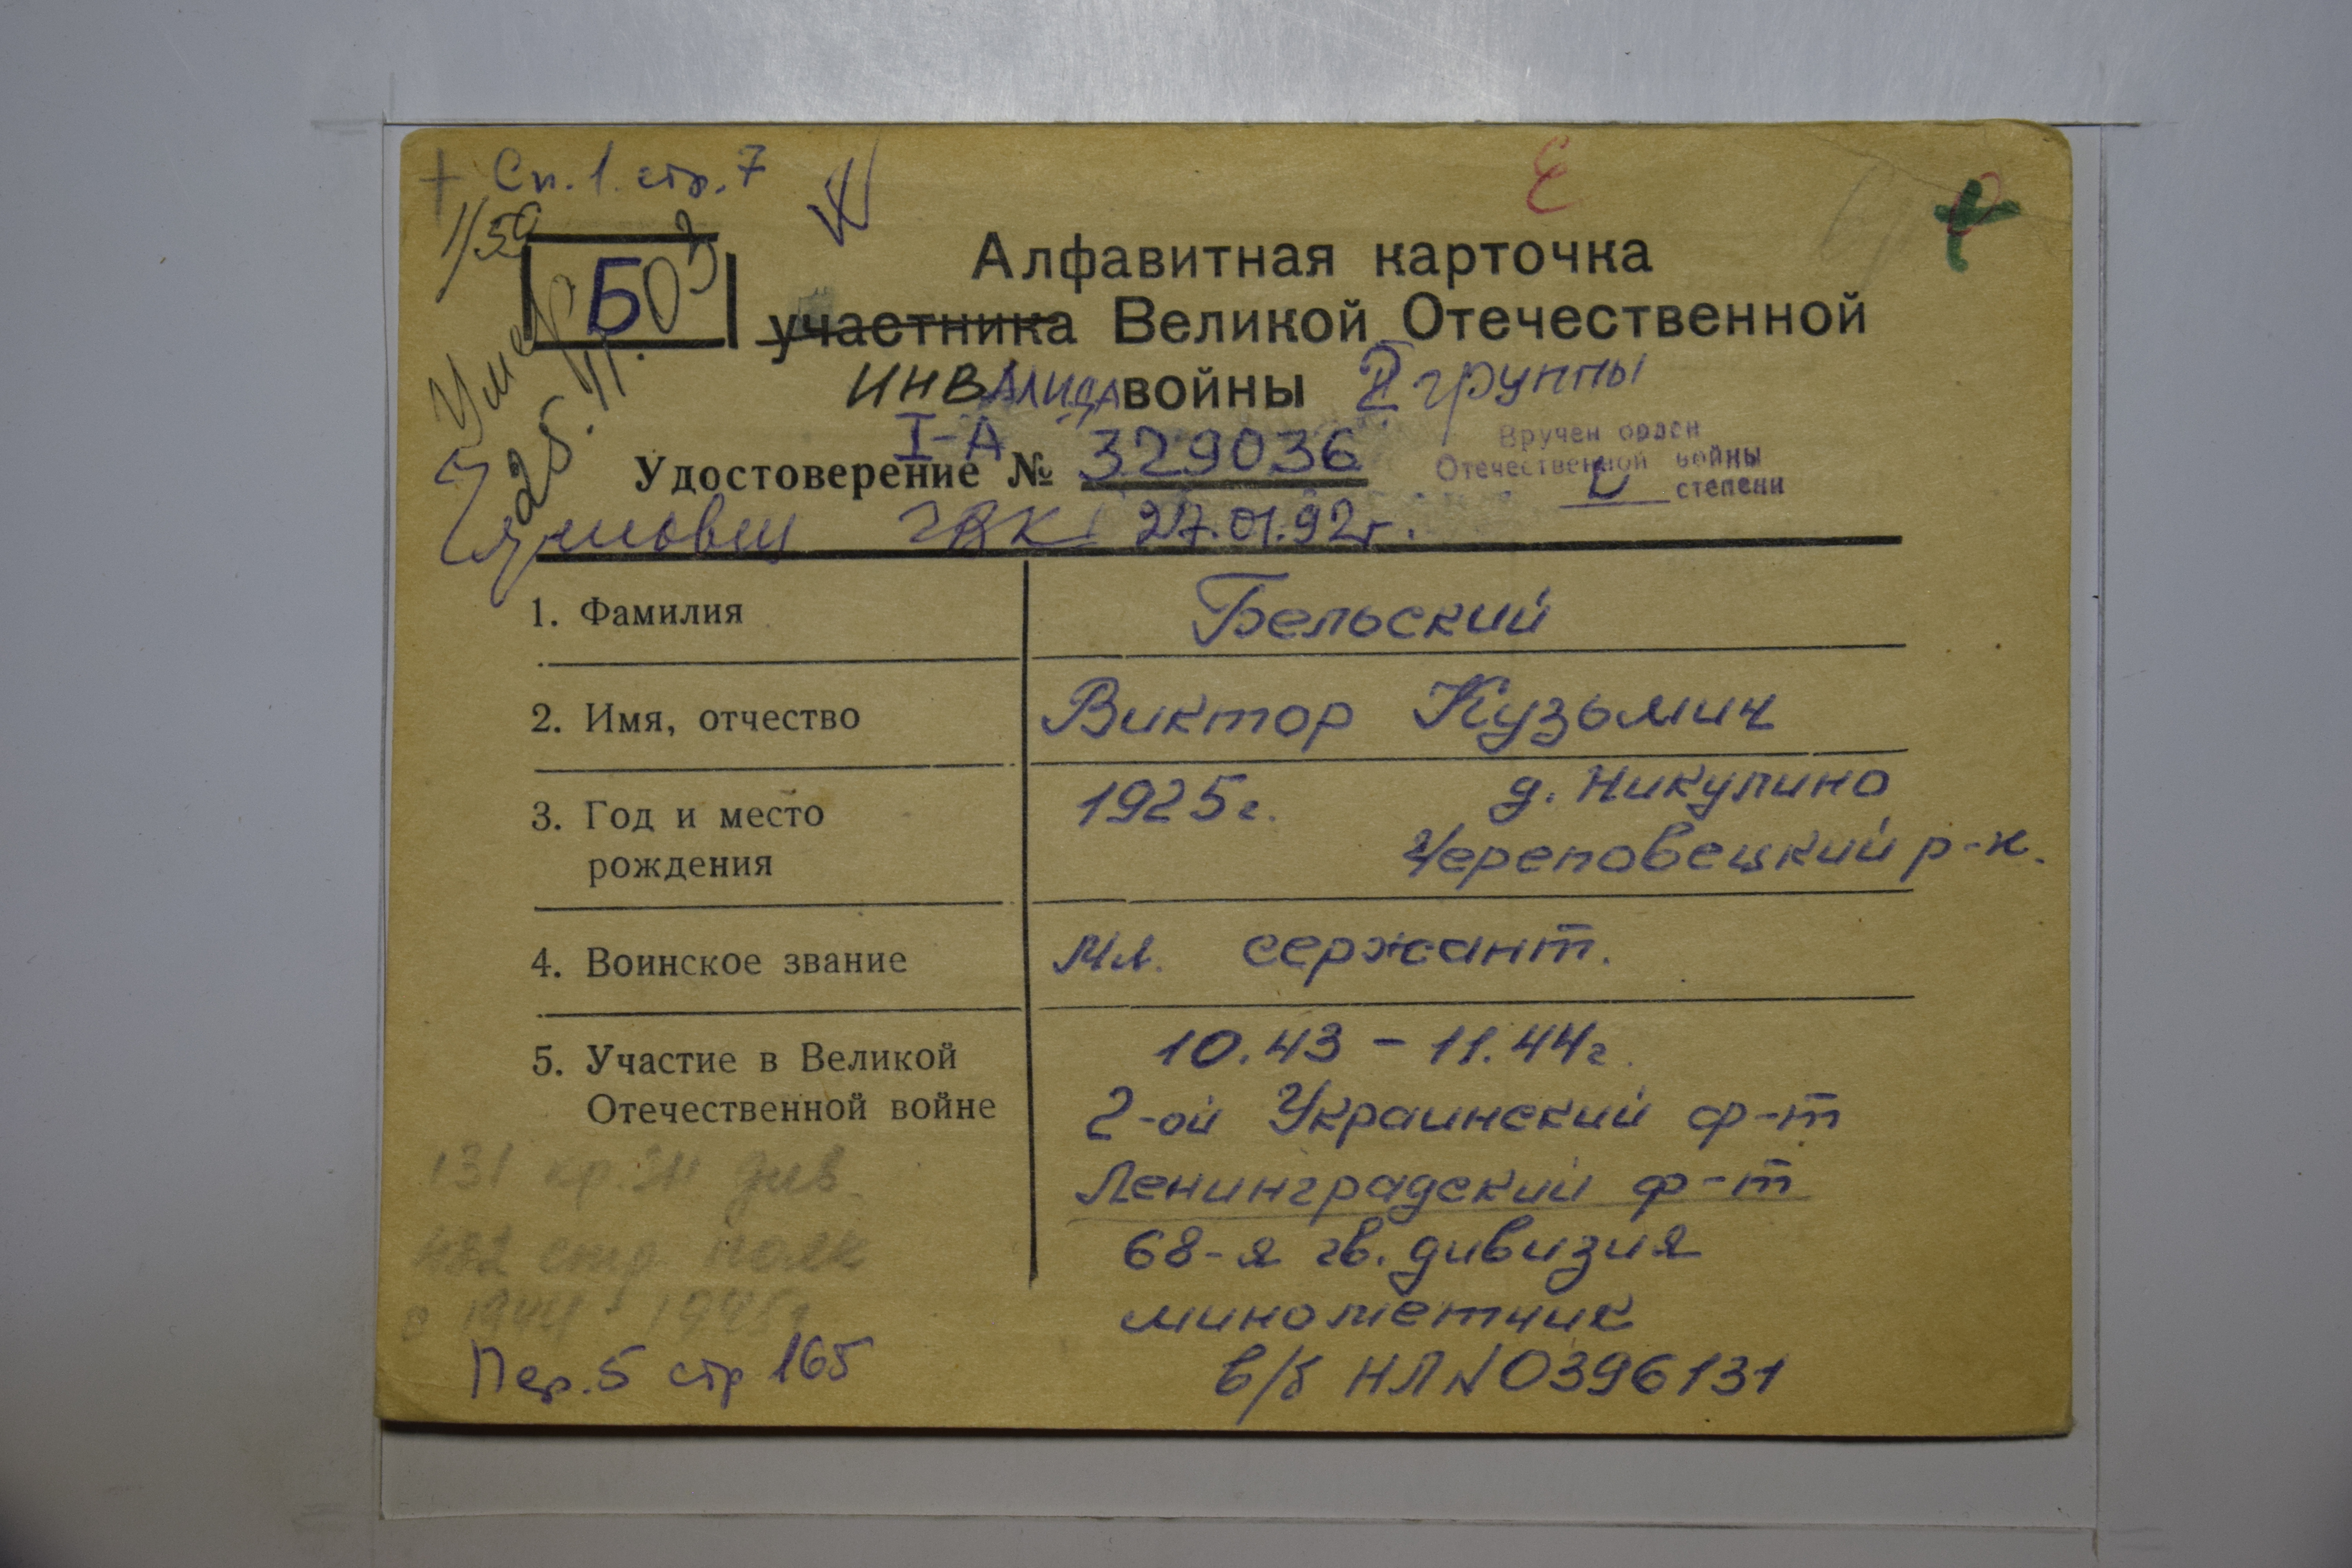 + Сп. 1. стр. 7
1/50
Б
Умер
25.11.03
Алфавитная карточка
участника Великой Отечественной
инвалида войны II группы
I-А
Удостоверение № 329036
Вручен орден
Отечественной войны
степени
27.01.92г.
1. Фамилия Бельский
2. Имя, отчество Виктор Кузьмич
3. Год и место 1925г. д. Никулино
рождения Череповецкий р-н.
4. Воинское звание Мл. сержант.
5. Участие в Великой 10.43 - 11.44г.
Отечественной войне 2-ой Украинский ф-т
131 кр. зн. див. Ленинградский ф-т
482 стр. полк 68-я гв. дивизия
с 1944 - 1945г минометчик
Пер. 5 стр 165 в/б НЛ N 0396131